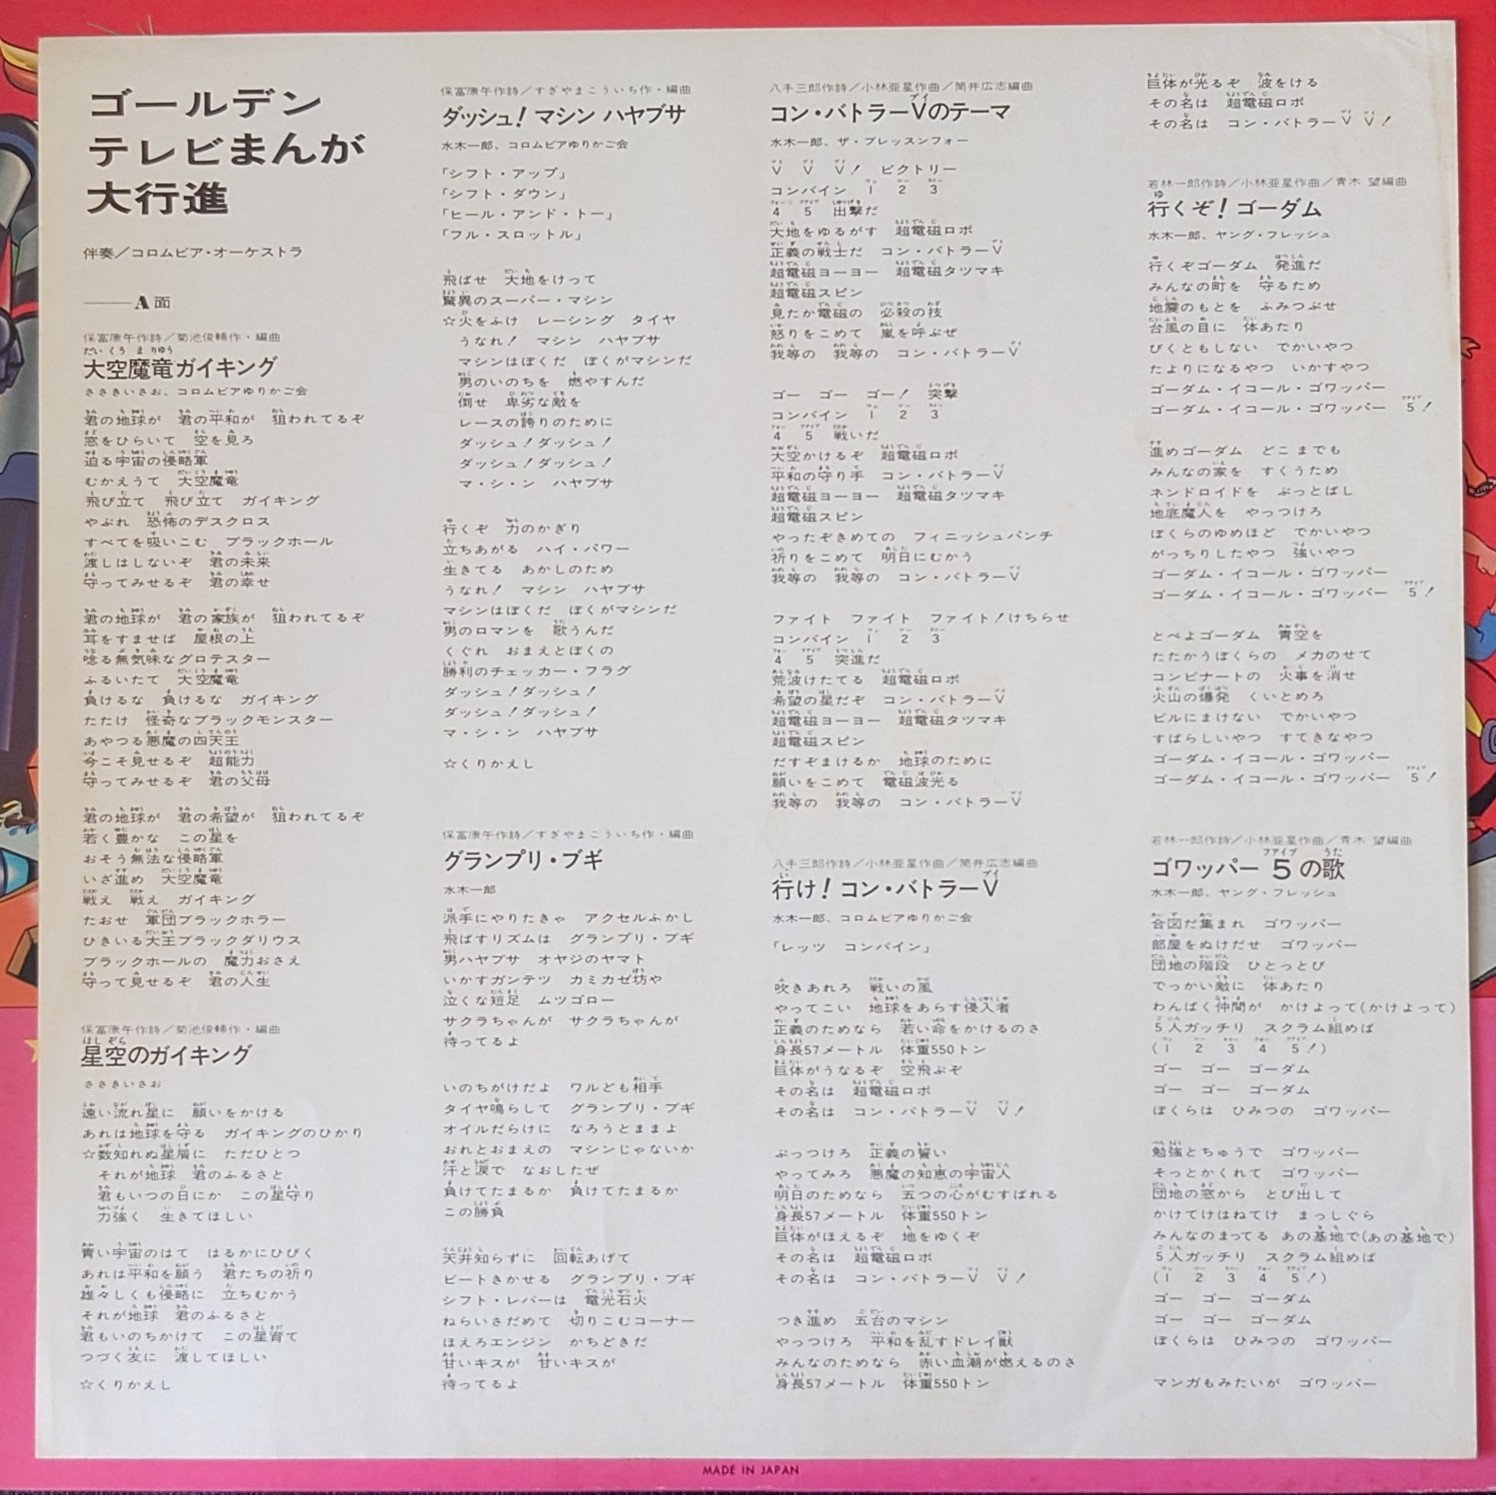 ゴールデン
テレビまんが
大行進
伴奏／コロムビア・オーケストラ
——A面
保富康午作詩／菊池俊輔作・編曲
大空魔竜ガイキング
ささきいさお、コロムビアゆりかご会
君の地球が　君の平和が　狙われてるぞ
窓をひらいて　空を見ろ
迫る宇宙の侵略軍
むかえうて　大空魔竜
飛び立て　飛び立て　ガイキング
やぶれ　恐怖のデスクロス
すべてを吸いこむ　ブラックホール
渡しはしないぞ　君の未来
守ってみせるぞ　君の幸せ
君の地球が　君の家族が　狙われてるぞ
耳をすませば　屋根の上
唸る無気味なグロテスター
ふるいたて　大空魔竜
負けるな　負けるな　ガイキング
たたけ　怪奇なブラックモンスター
あやつる悪魔の四天王
今こそ見せるぞ　超能力
守ってみせるぞ　君の父母
君の地球が　君の希望が　狙われてるぞ
若く豊かな　この星を
おそう無法な侵略軍
いざ進め　大空魔竜
戦え　戦え　ガイキング
たおせ　軍団ブラックホラー
ひきいる大王ブラックダリウス
ブラックホールの　魔力おさえ
守って見せるぞ　君の人生
保富康午作詩／菊池俊輔作・編曲
星空のガイキング
ささきいさお
遠い流れ星に　願いをかける
あれは地球を守る　ガイキングのひかり
☆数知れぬ星屑に　ただひとつ
それが地球　君のふるさと
君もいつの日にか　この星守り
力強く　生きてほしい
青い宇宙のはて　はるかにひびく
あれは平和を願う　君たちの祈り
雄々しくも侵略に　立ちむかう
それが地球　君のふるさと
君もいのちかけて　この星育て
つづく友に　渡してほしい
☆くりかえし
保富康午作詩／すぎやまこういち作・編曲
ダッシュ！マシン ハヤブサ
水木一郎、コロムビアゆりかご会
「シフト・アップ」
「シフト・ダウン」
「ヒール・アンド・トー」
「フル・スロットル」
飛ばせ　大地をけって
驚異のスーパー・マシン
☆火をふけ　レーシング　タイヤ
うなれ！　マシン　ハヤブサ
マシンはぼくだ　ぼくがマシンだ
男のいのちを　燃やすんだ
倒せ　卑劣な敵を
レースの誇りのために
ダッシュ！ダッシュ！
ダッシュ！ダッシュ！
マ・シ・ン　ハヤブサ
行くぞ　力のかぎり
立ちあがる　ハイ・パワー
生きてる　あかしのため
うなれ！　マシン　ハヤブサ
マシンはぼくだ　ぼくがマシンだ
男のロマンを　歌うんだ
くぐれ　おまえとぼくの
勝利のチェッカー・フラグ
ダッシュ！ダッシュ！
ダッシュ！ダッシュ！
マ・シ・ン　ハヤブサ
☆くりかえし
保富康午作詩／すぎやまこういち作・編曲
グランプリ・ブギ
水木一郎
派手にやりたきゃ　アクセルふかし
飛ばすリズムは　グランプリ・ブギ
男ハヤブサ　オヤジのヤマト
いかすガンテツ　カミカゼ坊や
泣くな短足　ムツゴロー
サクラちゃんが　サクラちゃんが
待ってるよ
いのちがけだよ　ワルども相手
タイヤ鳴らして　グランプリ・ブギ
オイルだらけに　なろうとままよ
おれとおまえの　マシンじゃないか
汗と涙で　なおしたぜ
負けてたまるか　負けてたまるか
この勝負
天井知らずに　回転あげて
ビートきかせる　グランプリ・ブギ
シフト・レバーは　電光石火
ねらいさだめて　切りこむコーナー
ほえろエンジン　かちどきだ
甘いキスが　甘いキスが
待ってるよ
八手三郎作詩／小林亜星作曲／筒井広志編曲
コン・バトラーVのテーマ
水木一郎、ザ・ブレッスンフォー
V　V　V！　ビクトリー
コンバイン　1　2　3
4　5　出撃だ
大地をゆるがす　超電磁ロボ
正義の戦士だ　コン・バトラーV
超電磁ヨーヨー　超電磁タツマキ
超電磁スピン
見たか電磁の　必殺の技
怒りをこめて　嵐を呼ぶぜ
我等の　我等の　コン・バトラーV
ゴー　ゴー　ゴー！　突撃
コンバイン　1　2　3
4　5　戦いだ
大空かけるぞ　超電磁ロボ
平和の守り手　コン・バトラーV
超電磁ヨーヨー　超電磁タツマキ
超電磁スピン
やったぞきめての　フィニッシュパンチ
祈りをこめて　明日にむかう
我等の　我等の　コン・バトラーV
ファイト　ファイト　ファイト！けちらせ
コンバイン　1　2　3
4　5　突進だ
荒波けたてる　超電磁ロボ
希望の星だぞ　コン・バトラーV
超電磁ヨーヨー　超電磁タツマキ
超電磁スピン
だすぞまけるか　地球のために
願いをこめて　電磁波光る
我等の　我等の　コン・バトラーV
八手三郎作詩／小林亜星作曲／筒井広志編曲
行け！コン・バトラーV
水木一郎、コロムビアゆりかご会
「レッツ　コンバイン」
吹きあれろ　戦いの風
やってこい　地球をあらす侵入者
正義のためなら　若い命をかけるのさ
身長57メートル　体重550トン
巨体がうなるぞ　空飛ぶぞ
その名は　超電磁ロボ
その名は　コン・バトラーV　V！
ぶっつけろ　正義の誓い
やってみろ　悪魔の知恵の宇宙人
明日のためなら　五つの心がむすばれる
身長57メートル　体重550トン
巨体がほえるぞ　地をゆくぞ
その名は　超電磁ロボ
その名は　コン・バトラーV　V！
つき進め　五台のマシン
やっつけろ　平和を乱すドレイ獣
みんなのためなら　赤い血潮が燃えるのさ
身長57メートル　体重550トン
巨体が光るぞ　波をける
その名は　超電磁ロボ
その名は　コン・バトラーV　V！
若林一郎作詩／小林亜星作曲／青木 望編曲
行くぞ！ゴーダム
水木一郎、ヤング・フレッシュ
行くぞゴーダム　発進だ
みんなの町を　守るため
地震のもとを　ふみつぶせ
台風の目に　体あたり
びくともしない　でかいやつ
たよりになるやつ　いかすやつ
ゴーダム・イコール・ゴワッパー
ゴーダム・イコール・ゴワッパー　5！
進めゴーダム　どこまでも
みんなの家を　すくうため
ネンドロイドを　ぶっとばし
地底魔人を　やっつけろ
ぼくらのゆめほど　でかいやつ
がっちりしたやつ　強いやつ
ゴーダム・イコール・ゴワッパー
ゴーダム・イコール・ゴワッパー　5！
とべよゴーダム　青空を
たたかうぼくらの　メカのせて
コンビナートの　火事を消せ
火山の爆発　くいとめろ
ビルにまけない　でかいやつ
すばらしいやつ　すてきなやつ
ゴーダム・イコール・ゴワッパー
ゴーダム・イコール・ゴワッパー　5！
若林一郎作詩／小林亜星作曲／青木 望編曲
ゴワッパー 5 の歌
水木一郎、ヤング・フレッシュ
合図だ集まれ　ゴワッパー
部屋をぬけだせ　ゴワッパー
団地の階段　ひとっとび
でっかい敵に　体あたり
わんぱく仲間が　かけよって(かけよって)
5人ガッチリ　スクラム組めば
(1　2　3　4　5！)
ゴー　ゴー　ゴーダム
ゴー　ゴー　ゴーダム
ぼくらは　ひみつの　ゴワッパー
勉強とちゅうで　ゴワッパー
そっとかくれて　ゴワッパー
団地の窓から　とび出して
かけてけはねてけ　まっしぐら
みんなのまってる　あの基地で(あの基地で)
5人ガッチリ　スクラム組めば
(1　2　3　4　5！)
ゴー　ゴー　ゴーダム
ゴー　ゴー　ゴーダム
ぼくらは　ひみつの　ゴワッパー
マンガもみたいが　ゴワッパー
MADE IN JAPAN